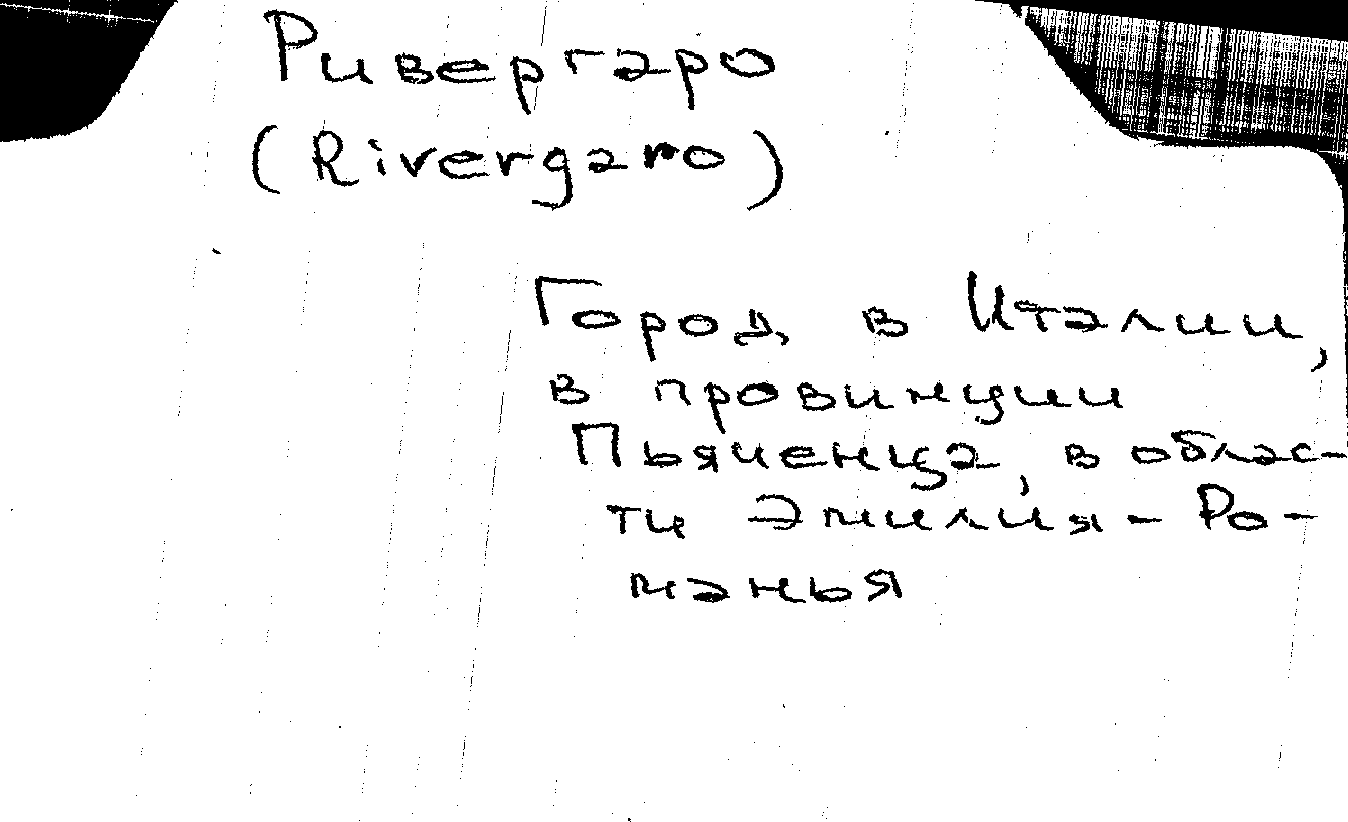 Ривергаро
(Rivergaro)
Город в Италии,
в провинции
Пьяченца, в облас-
ти Эмилия-Ро-
манья